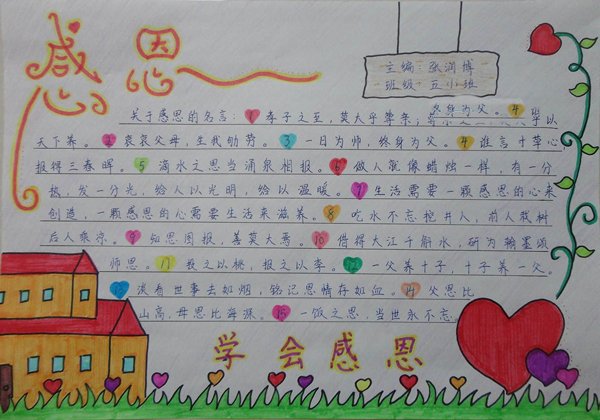 感恩
主编：张润博
班级：五小班
终身为父。4
关于感恩的名言：1 孝子之至，莫大乎尊亲；尊亲之至，莫大乎以
天下养。2 哀哀父母，生我劬劳。3 一日为师，终身为父。4 谁言寸草心，
报得三春晖。5 滴水之恩当涌泉相报。6 做人就像蜡烛一样，有一分
热，发一分光，给人以光明，给以温暖。7 生活需要一颗感恩的心来
创造，一颗感恩的心需要生活来滋养。8 吃水不忘挖井人，前人栽树
后人乘凉。9 知恩图报，善莫大焉。10 借得大江千斛水，研为翰墨颂
师恩。11 投之以桃，报之以李。12 一父养十子，十子养一父。
13 淡看世事去如烟，铭记恩情存如血。14 父恩比
山高，母恩比海深。15 一饭之恩，当世永不忘。
学会感恩